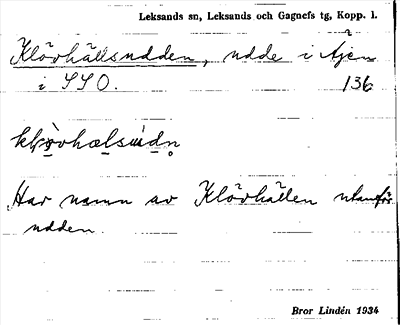 Leksands sn, Leksands och Gagnefs tg, Kopp. l.
Klövhällsudden, udde i
i SSO. 136
Har namn av Klövhällen utanför
udden.
Bror Lindén 1934